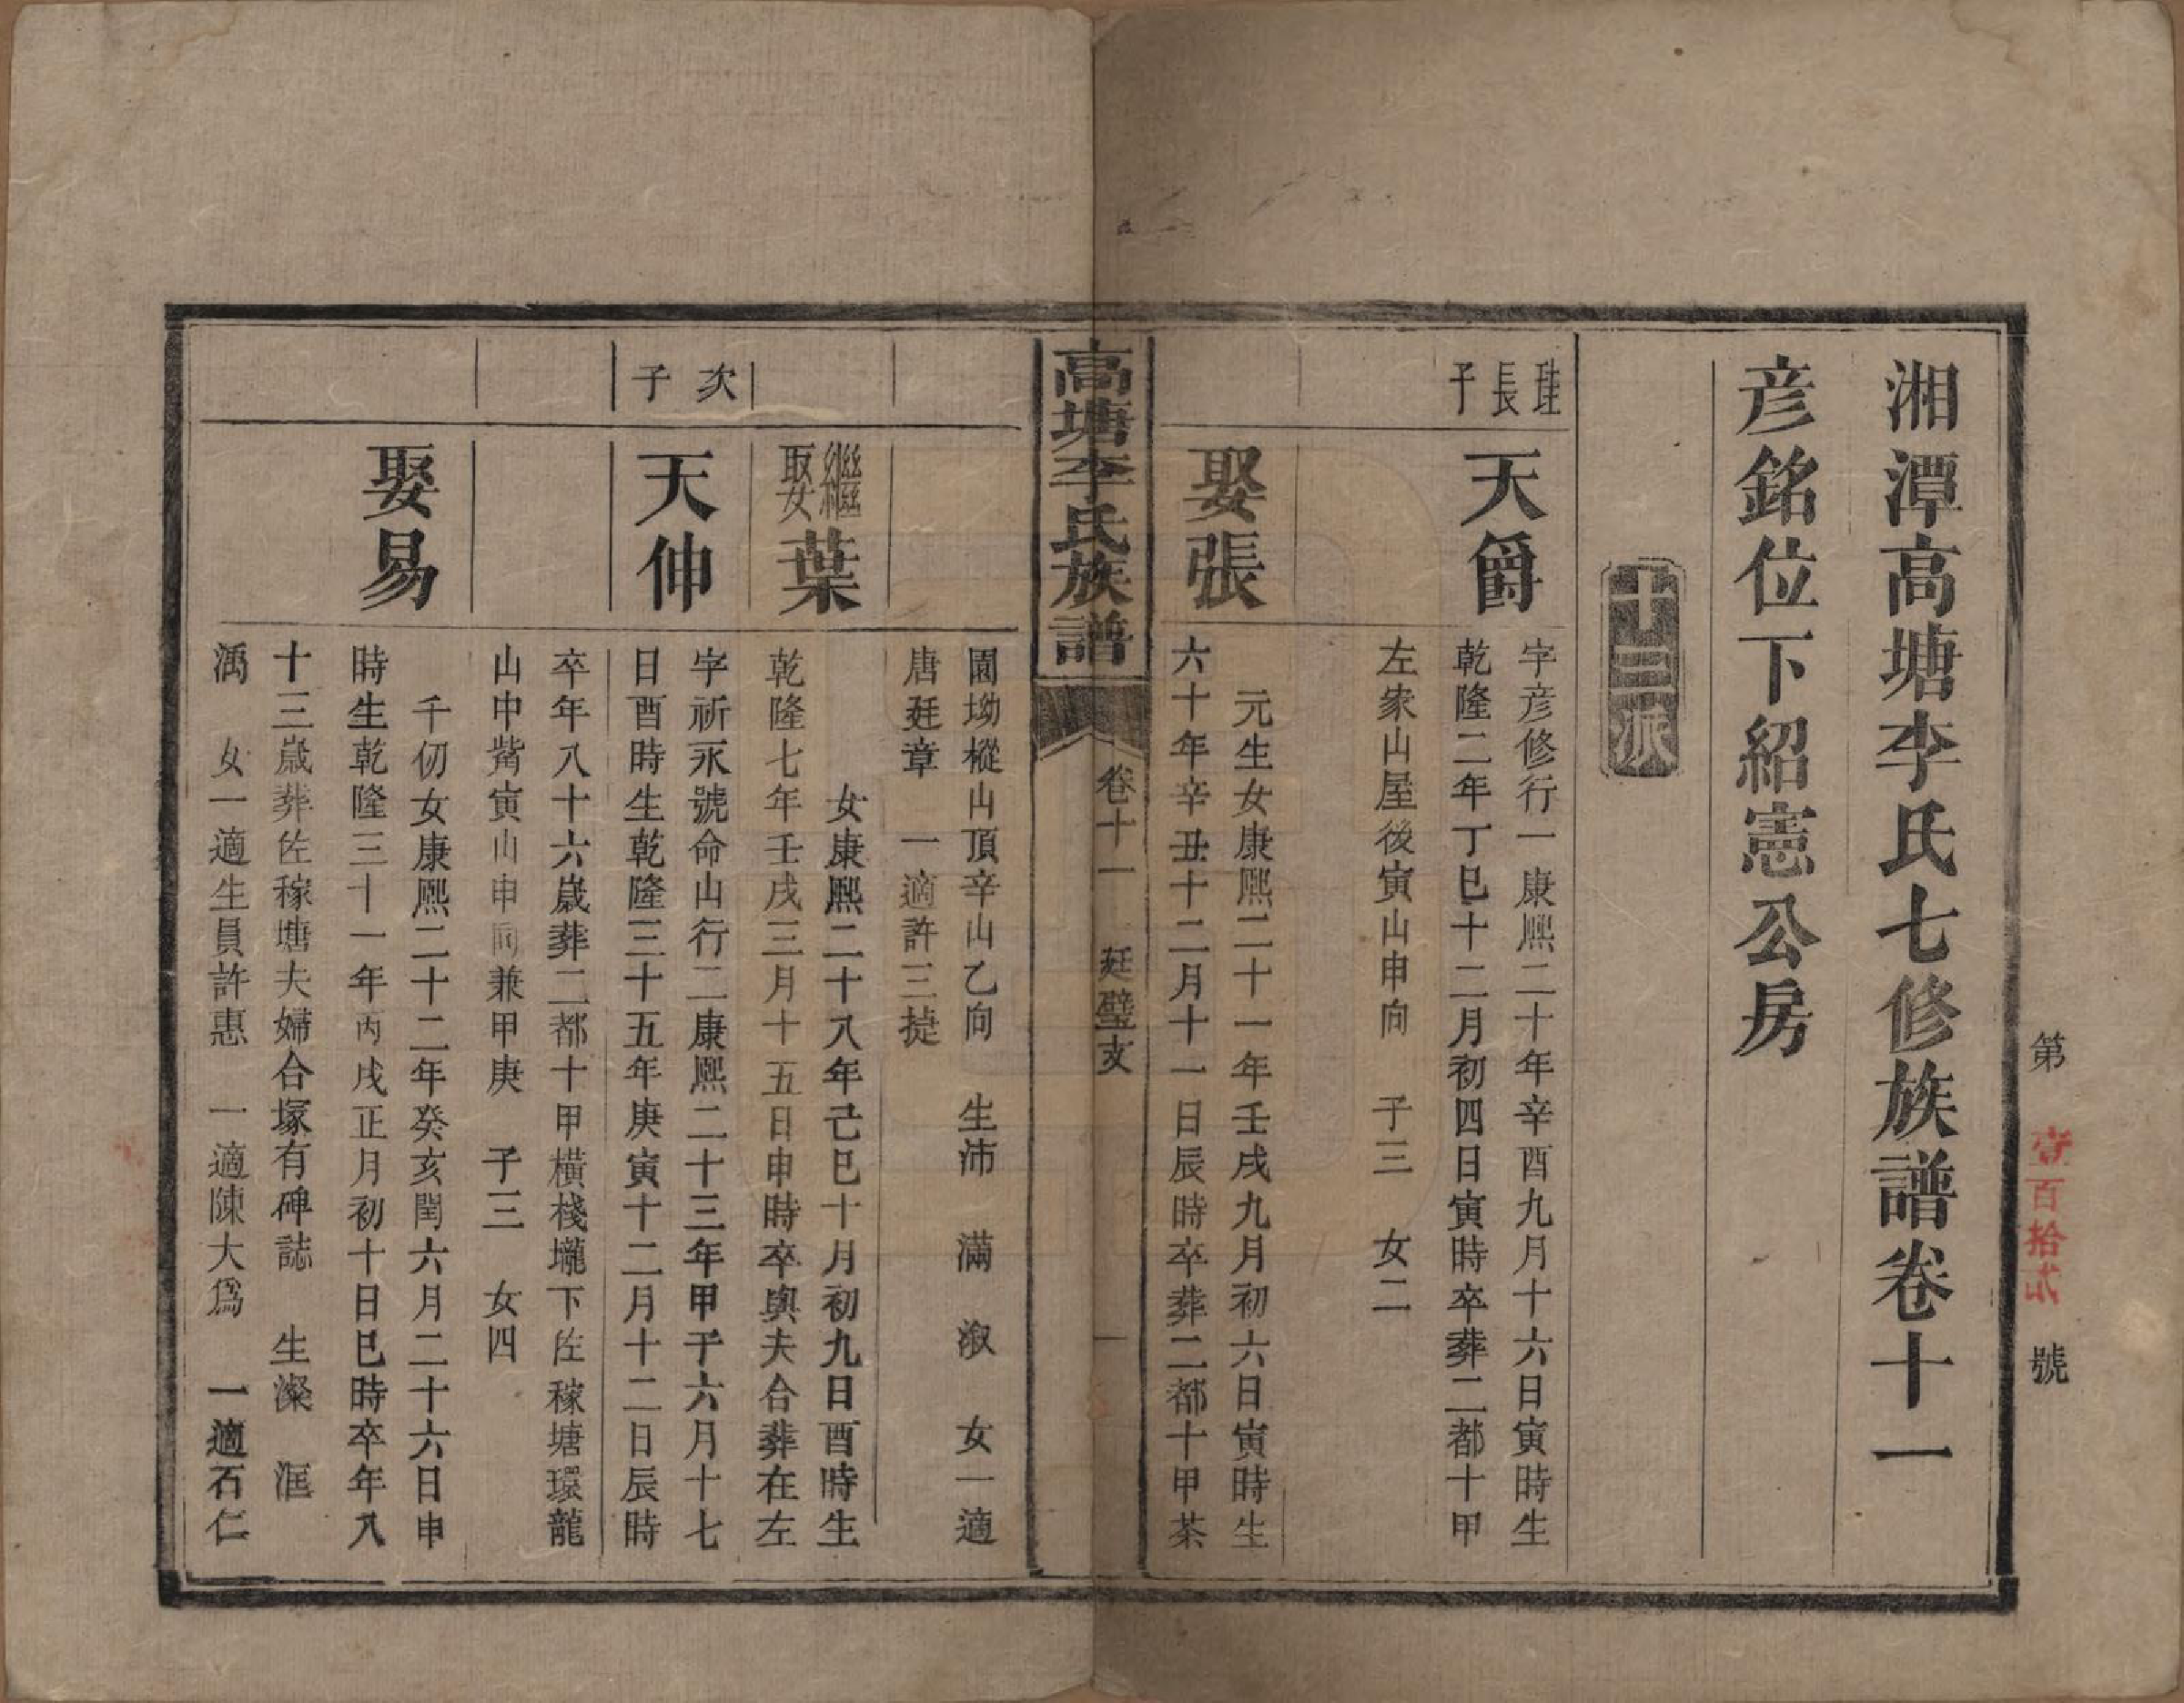 第壹百拾貳號
湘潭高塘李氏七修族譜卷十一
彦銘位下紹憲公房
十三派
珪長子
天爵
字彦修行一康熙二十年辛酉九月十六日寅時生
乾隆二年丁巳十二月初四日寅時卒葬二都十甲
左家山屋後寅山申向　子三　女二
娶張
元生女康熙二十一年壬戌九月初六日寅時生
六十年辛丑十二月十一日辰時卒葬二都十甲茶
高塘李氏族譜
卷十一　廷璧支　一
園坳樅山頂辛山乙向　生沛　滿　淑　女一適
唐廷章　一適許三㨗
繼娶葉
女康熙二十八年己巳十月初九日酉時生
乾隆七年壬戌三月十五日申時卒與夫合葬在左
次子
天伸
字祈永號命山行二康熙二十三年甲子六月十七
日酉時生乾隆三十五年庚寅十二月十二日辰時
卒年八十六歲葬二都十甲橫棧壠下佐稼塘環龍
山中嘴寅山申向兼甲庚　子三　女四
娶易
千仞女康熙二十二年癸亥閏六月二十六日申
時生乾隆三十一年丙戌正月初十日巳時卒年八
十三歲葬佐稼塘夫婦合塚有碑誌　生濼　滙
潙　女一適生員許惠　一適陳大爲　一適石仁